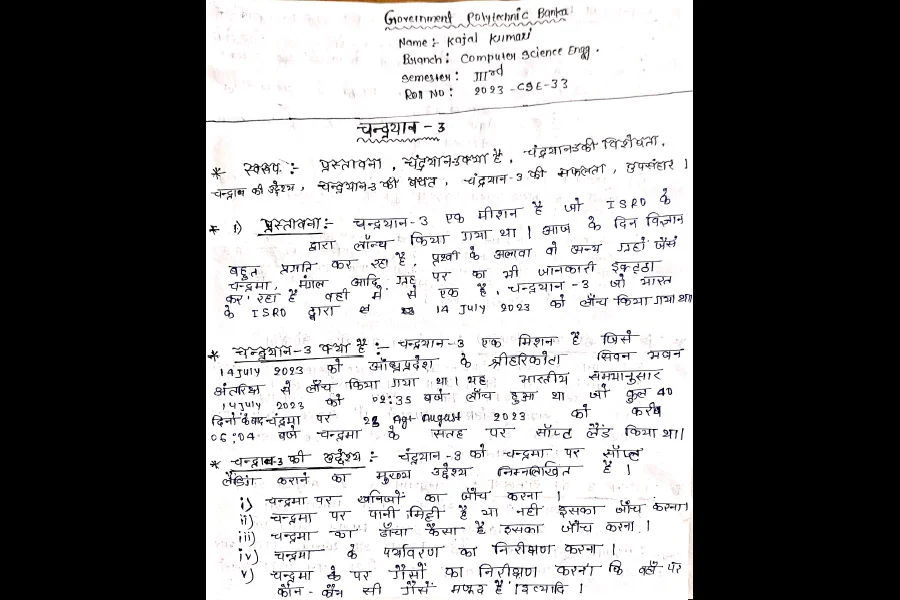 Government Polytechnic Banka
Name :- Kajal Kumari
Branch : Computer Science Engg.
Semester : IIIrd
Roll No : 2023-CSE-33
चन्द्रयान - 3
* स्वरूप :- प्रस्तावना, चंद्रयान-3 क्या है, चंद्रयान-3 की विशेषता,
चन्द्रयान की उद्देश्य, चन्द्रयान-3 की बजत, चंद्रयान-3 की सफलता, उपसंहार।
* 1) प्रस्तावना :- चन्द्रयान-3 एक मिशन है जो ISRO के
द्वारा लॉन्च किया गया था। आज के दिन विज्ञान
बहुत प्रगति कर रहा है, पृथ्वी के अलवा वो अन्य ग्रहों जैसे
चन्द्रमा, मंगल आदि ग्रह पर का भी जानकारी इकट्ठा
कर रहा है वही में से एक है, चन्द्रयान-3 जो भारत
के ISRO द्वारा 14 July 2023 को लाँच किया गया था।
* चन्द्रयान-3 क्या है :- चन्द्रयान-3 एक मिशन है जिसे
14 July 2023 को आँध्रप्रदेश के श्रीहरिकोता सिवन भवन
अंतरिक्ष से लाँच किया गया था। यह भारतीय समयानुसार
14 July 2023 को 02:35 बजे लाँच हुआ था जो कुल 40
दिनों के बाद चंद्रमा पर 23 August 2023 को करीब
06:04 बजे चन्द्रमा के सतह पर सॉफ्ट लैंड किया था।
* चन्द्रयान-3 की उद्देश्य :- चंद्रयान-3 को चन्द्रमा पर सॉफ्ट
लैंडिंग कराने का मुख्य उद्देश्य निम्नलिखित है।
i) चन्द्रमा पर खनिजों का जाँच करना।
ii) चन्द्रमा पर पानी, मिट्टी है या नहीं इसका जाँच करना।
iii) चन्द्रमा का ढाँचा कैसा है इसका जाँच करना।
iv) चन्द्रमा के पर्यावरण का निरीक्षण करना।
v) चन्द्रमा के पर गैसों का निरीक्षण करना कि वहाँ पर
कौन-कौन सी गैसें मौजूद हैं। इत्यादि।